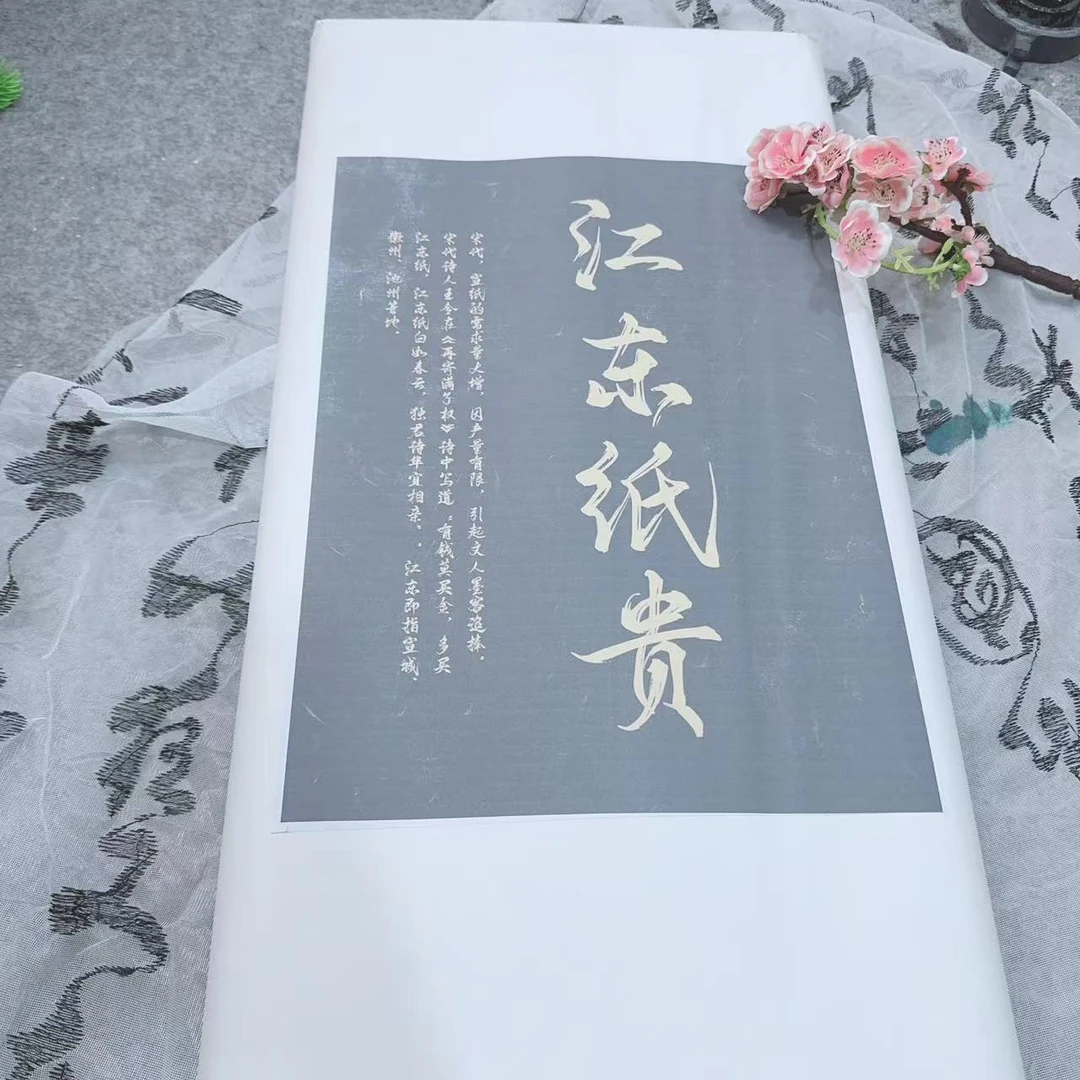 江东纸贵
宋代，宣纸的需求量大增，因产量有限，引起文人墨客追捧，
宋代诗人王令在《再寄满子权》诗中写道“有钱莫买金，多买
江东纸，江东纸白如春云，独君诗华宜相亲。，江东即指宣城、
徽州、池州等地。